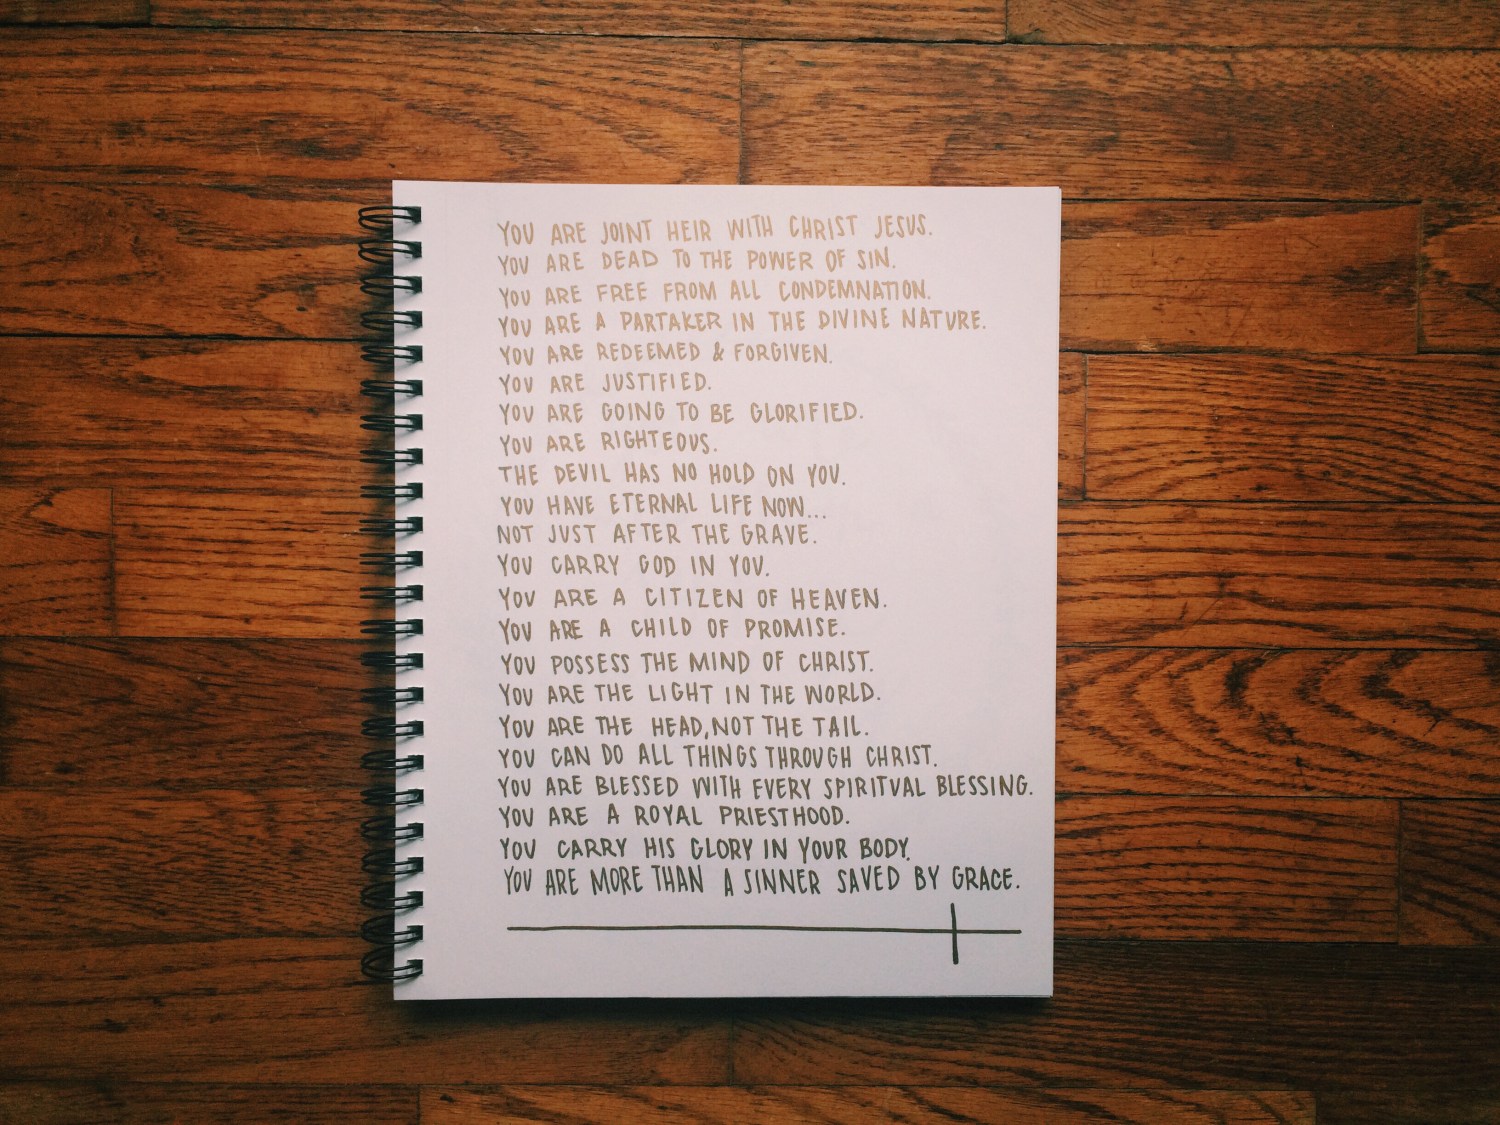 YOU ARE JOINT HEIR WITH CHRIST JESUS.
YOU ARE DEAD TO THE POWER OF SIN.
YOU ARE FREE FROM ALL CONDEMNATION.
YOU ARE A PARTAKER IN THE DIVINE NATURE.
YOU ARE REDEEMED & FORGIVEN.
YOU ARE JUSTIFIED.
YOU ARE GOING TO BE GLORIFIED.
YOU ARE RIGHTEOUS.
THE DEVIL HAS NO HOLD ON YOU.
YOU HAVE ETERNAL LIFE NOW...
NOT JUST AFTER THE GRAVE.
YOU CARRY GOD IN YOU.
YOU ARE A CITIZEN OF HEAVEN.
YOU ARE A CHILD OF PROMISE.
YOU POSSESS THE MIND OF CHRIST.
YOU ARE THE LIGHT IN THE WORLD.
YOU ARE THE HEAD, NOT THE TAIL.
YOU CAN DO ALL THINGS THROUGH CHRIST.
YOU ARE BLESSED WITH EVERY SPIRITUAL BLESSING.
YOU ARE A ROYAL PRIESTHOOD.
YOU CARRY HIS GLORY IN YOUR BODY.
YOU ARE MORE THAN A SINNER SAVED BY GRACE.